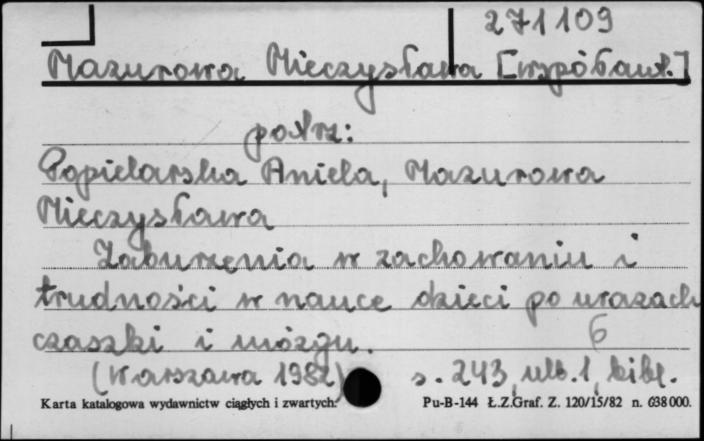 271109
Mazurowa Mieczysława [współaut.]
patrz:
Popielarska Aniela, Mazurowa
Mieczysława
Zaburzenia w zachowaniu i
trudności w nauce dzieci po urazach
czaszki i mózgu. 6
(Warszawa 1982) s. 243, ulb. 1, bibl.
Karta katalogowa wydawnictw ciągłych i zwartych. Pu-B-144 Ł.Z.Graf. Z. 120/15/82 n. 638000.